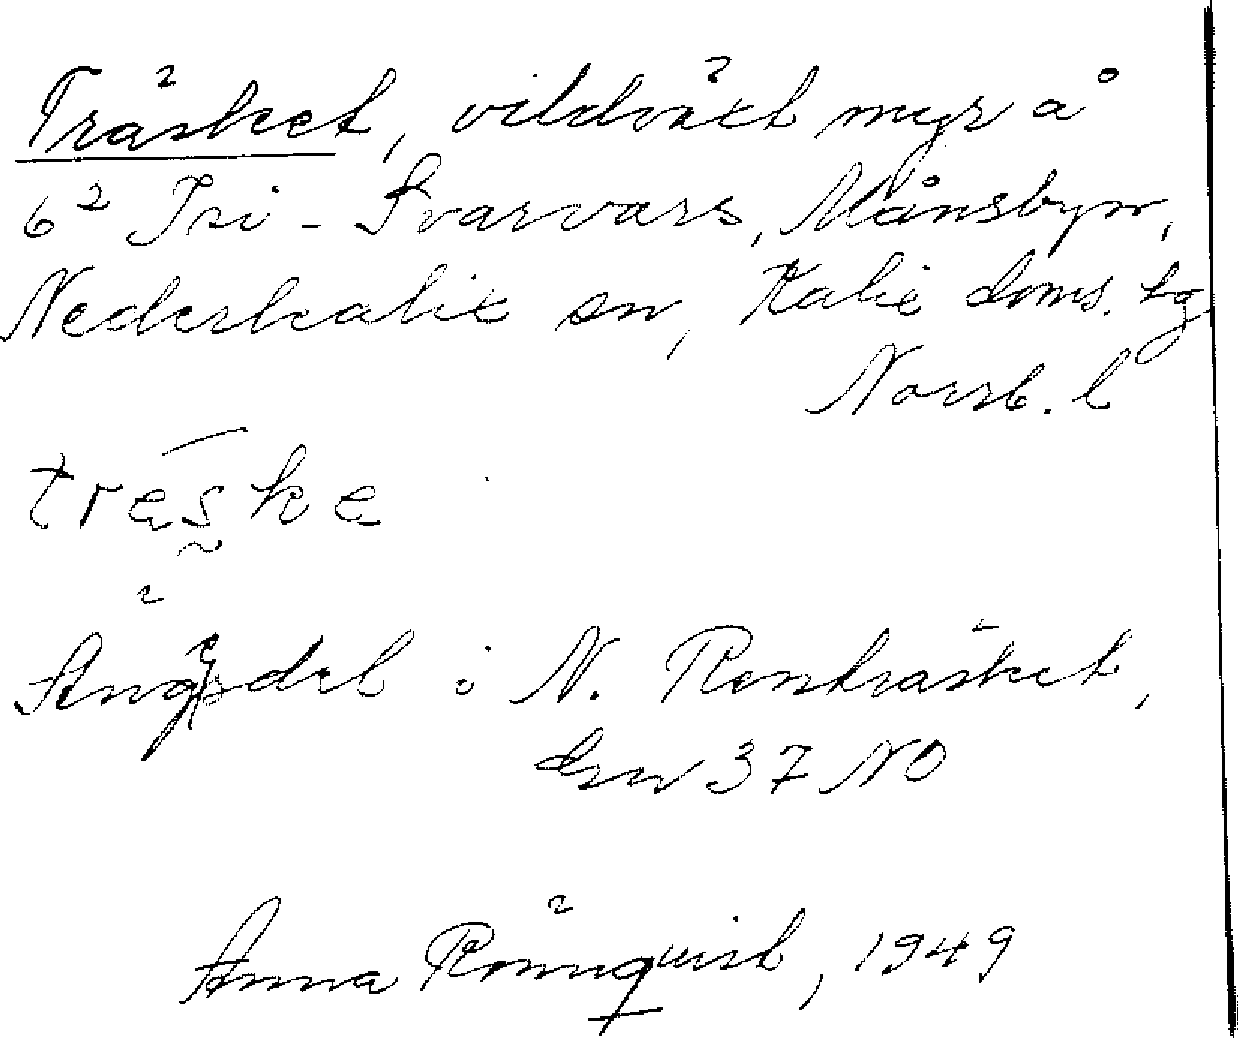 Träsket, vildväxt myr å
6² Isi - Svarvars, Månsbyn,
Nederkalix sn, Kalix doms. tg
Norrb. l
träske
Ängsdel i N. Renträsket,
Grn 37 NO
Anna Rönnquist, 1949